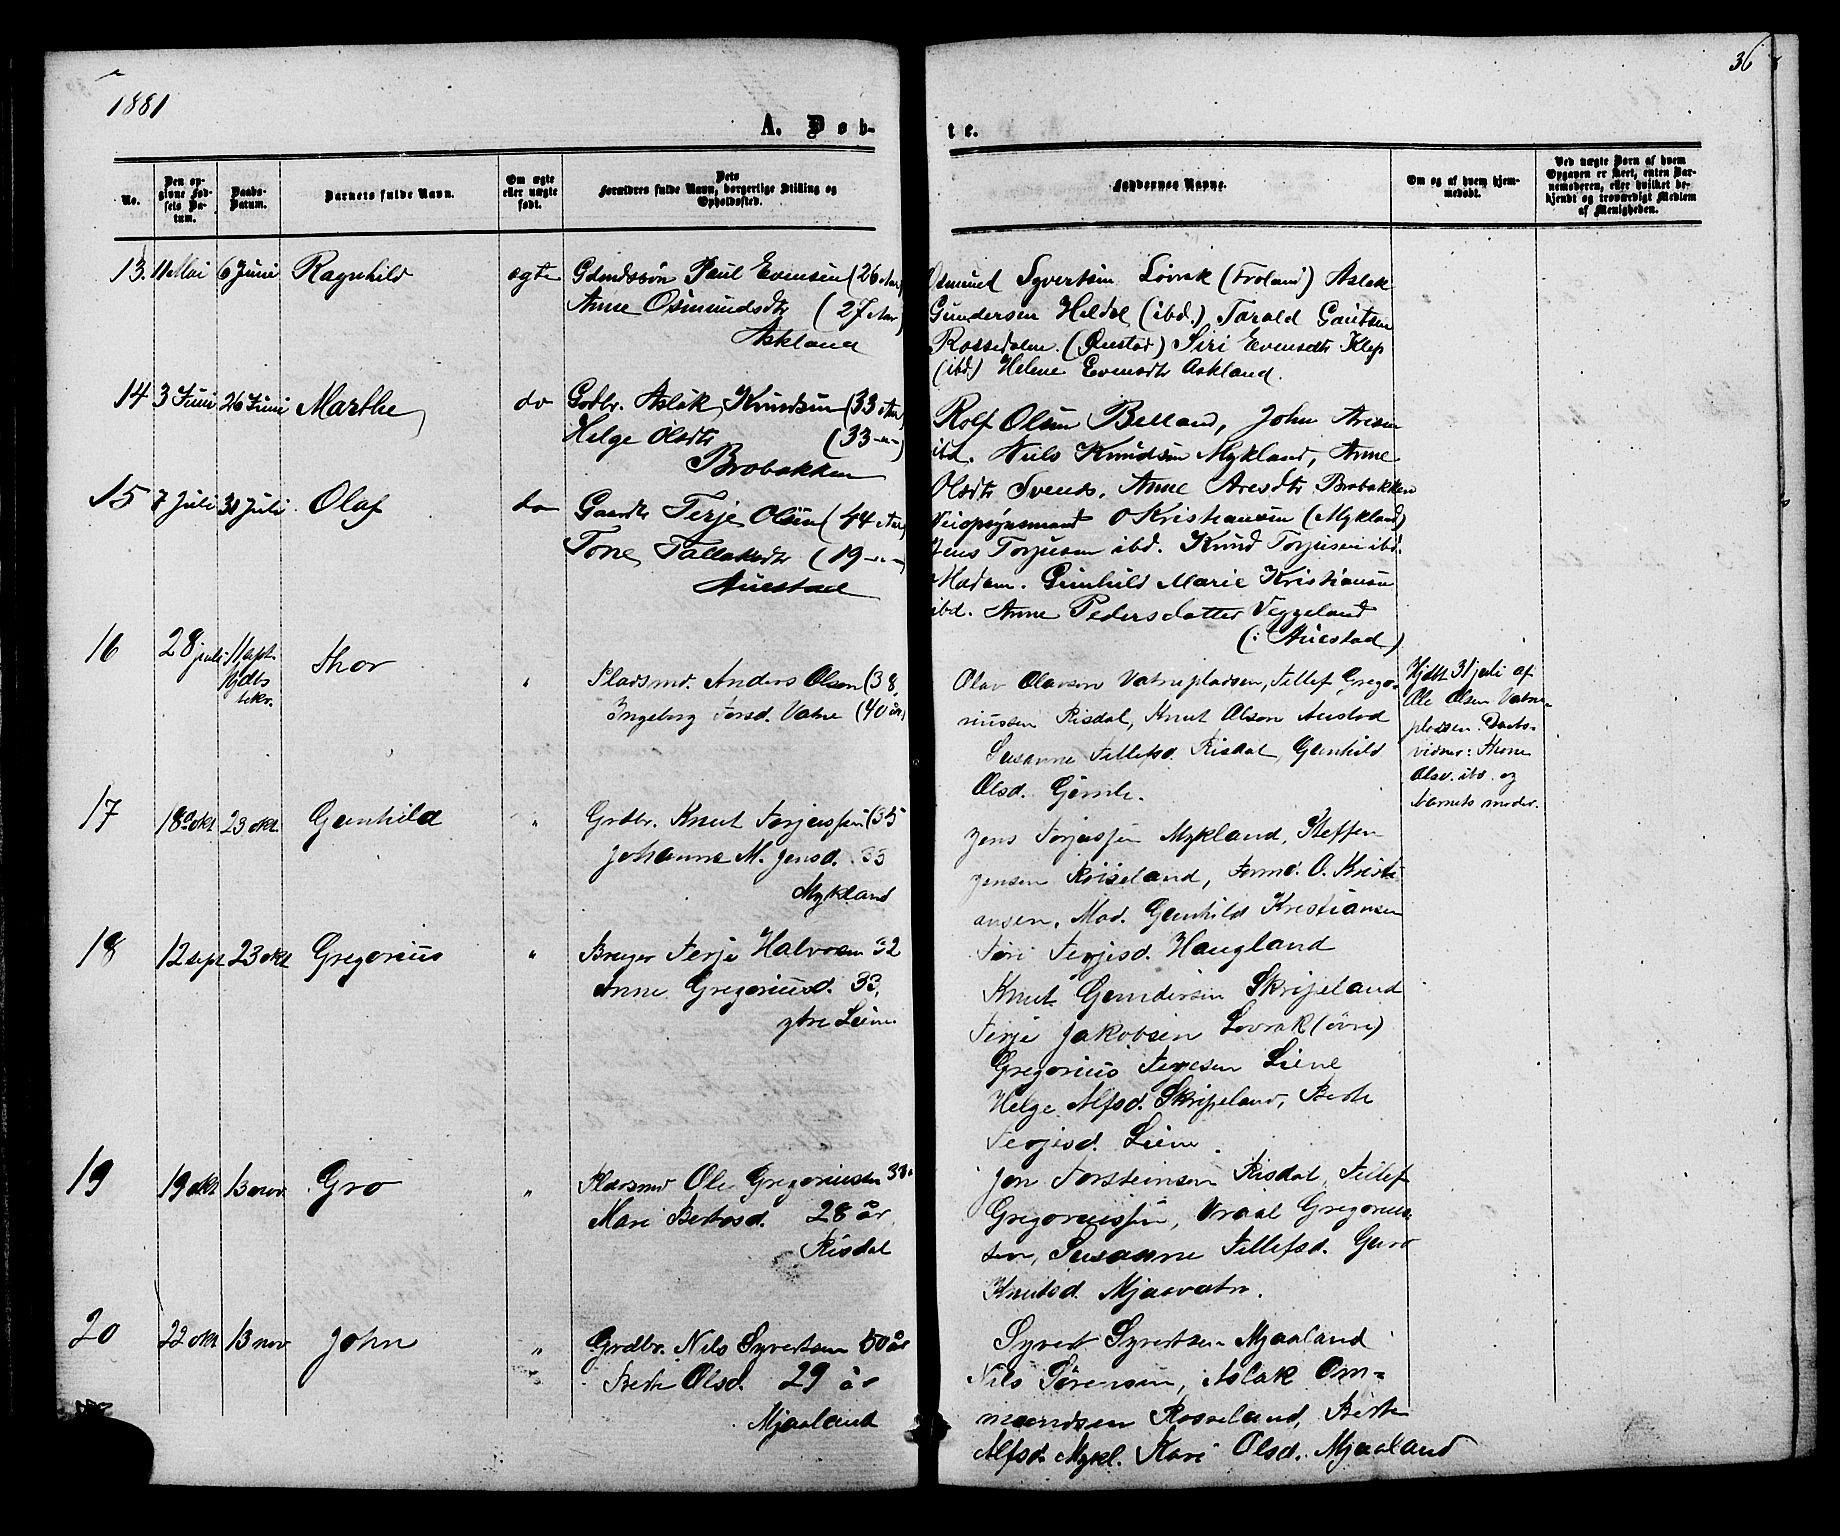 36
1881
A. Døb-
te.
No.
Den op-
givne Fød-
sels Da-
tum.
Daabs-
Datum.
Barnets fulde Navn.
Om ægte
eller uægte
født.
Dets
Forældres fulde Navn, borgerlige Stilling og
Opholdssted.
Faddernes Navne.
Om og af hvem hjem-
medøbt.
Ved uægte Børn af hvem
Opgaven er skeet, enten Bar-
nemoderen, eller hvilket be-
kjendt og troværdigt Medlem
af Menigheden.
13. 11 Mai 6 Juni Ragnhild ægte Gdmdssøn Paul Evensen (26 Aar)
Anne Osmundsdtr (27 Aar)
Askland
Osmund Syvertsen Lövrak (Froland) Aslak
Gundersen Heldal (ibd.) Tarald Gautsen
Rossedalen (Øustad) Siri Evensdtr Klep
(ibd.) Helene Evensdtr Askland.
14 3 Juni 26 Juni Marthe do Grdbr. Aslak Knudsen (33 Aar)
Helge Olsdtr (33 -"-)
Brobakken
Rolf Olsen Belland, John Aresen
ibd. Nils Knudsen Mykland, Anne
Olsdtr Svends. Anne Aresdtr Brobakken
15 7 Juli 31 Juli Olaf do Gaardbr Terje Olsen (44 Aar)
Tone Tallaksdtr (19 -"-)
Auestad
Veiopsynsmand O Kristiansen (Mykland)
Jens Torjusen ibd. Knud Torjusen ibd.
Madam. Gunhild Marie Kristiansen
ibd. Anne Pedersdatter Veggeland
(: Auestad)
16 28 juli 11 sept. Thor " Pladsmd. Anders Olsen (38,
Ingeborg Torsd. Vatne (40 år)
Olav Olavsen Vatnepladsen, Tellef Grego-
riussen Risdal, Knut Olsen Austad
Susanne Tellefsd. Risdal, Gunhild
Olsd. Gjemle.
Hjdt 31 juli af
Ole Olsen Vatne-
pladsen. Daabs-
vidner: Thone
Olsd. ibd. og
barnets moder.
17 18 okt 23 okt. Gunhild " Grdbr. Knut Torjussen (35
Johanne M. Jensd. 33
Mykland
Jens Torjussen Mykland, Steffen
Jensen Röiseland, O. Kristi-
ansen, Mad. Gunhild Kristiansen
Terjesd. Haugland
18 12 sept 23 okt Gregorius " Bruger Terje Halvorsen 32
Anne Gregoriusd. 33,
ytre Leine
Knut Gundersen Skripeland
Terje Jakobsen Lovrak (øvre)
Gregorius Terjesen Liene
Helge Alfsd. Skripeland, Berte
Terjesd. Liene.
19 19 okt 13 nov. Gro " Pladsmd Ole Gregoriussen 38.
Mari Bertosd. 28 år.
Risdal
Jon Torsteinsen Risdal, Tellef
Gregoriussen, Vraal Gregorius-
sen, Susanne Tellefsd. Guro
Knutsd. Mjaavatn.
20 22 okt 13 nov John " Grdbr. Nils Syvertsen 50 år
Berte Olsd. 29 år
Mjaaland
Syvert Syvertsen Mjaaland
Nils Sörensen, Aslak Om-
mundsen Rosseland, Berte
Alfsd. Mykl. Kari Olsd. Mjaaland